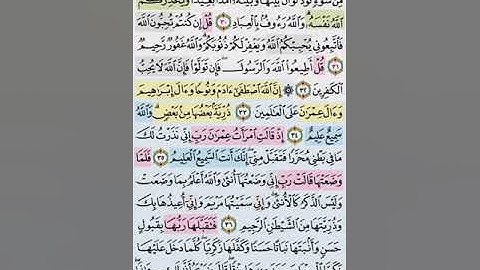 مِن سُوٓءٍ تَوَدُّ لَوْ أَنَّ بَيْنَهَا وَبَيْنَهُۥٓ أَمَدًۢا بَعِيدًا ۗ وَيُحَذِّرُكُمُ
ٱللَّهُ نَفْسَهُۥ ۗ وَٱللَّهُ رَءُوفٌۢ بِٱلْعِبَادِ ٣٠ قُلْ إِن كُنتُمْ تُحِبُّونَ ٱللَّهَ
فَٱتَّبِعُونِي يُحْبِبْكُمُ ٱللَّهُ وَيَغْفِرْ لَكُمْ ذُنُوبَكُمْ ۗ وَٱللَّهُ غَفُورٌ رَّحِيمٌ
٣١ قُلْ أَطِيعُوا۟ ٱللَّهَ وَٱلرَّسُولَ ۖ فَإِن تَوَلَّوْا۟ فَإِنَّ ٱللَّهَ لَا يُحِبُّ
ٱلْكَٰفِرِينَ ٣٢ ۞ إِنَّ ٱللَّهَ ٱصْطَفَىٰٓ ءَادَمَ وَنُوحًا وَءَالَ إِبْرَٰهِيمَ
وَءَالَ عِمْرَٰنَ عَلَى ٱلْعَٰلَمِينَ ٣٣ ذُرِّيَّةًۢ بَعْضُهَا مِنۢ بَعْضٍ ۗ وَٱللَّهُ
سَمِيعٌ عَلِيمٌ ٣٤ إِذْ قَالَتِ ٱمْرَأَتُ عِمْرَٰنَ رَبِّ إِنِّي نَذَرْتُ لَكَ
مَا فِي بَطْنِي مُحَرَّرًا فَتَقَبَّلْ مِنِّيٓ ۖ إِنَّكَ أَنتَ ٱلسَّمِيعُ ٱلْعَلِيمُ ٣٥ فَلَمَّا
وَضَعَتْهَا قَالَتْ رَبِّ إِنِّي وَضَعْتُهَآ أُنثَىٰ وَٱللَّهُ أَعْلَمُ بِمَا وَضَعَتْ
وَلَيْسَ ٱلذَّكَرُ كَٱلْأُنثَىٰ ۖ وَإِنِّي سَمَّيْتُهَا مَرْيَمَ وَإِنِّيٓ أُعِيذُهَا بِكَ
وَذُرِّيَّتَهَا مِنَ ٱلشَّيْطَٰنِ ٱلرَّجِيمِ ٣٦ فَتَقَبَّلَهَا رَبُّهَا بِقَبُولٍ
حَسَنٍ وَأَنۢبَتَهَا نَبَاتًا حَسَنًا وَكَفَّلَهَا زَكَرِيَّا ۖ كُلَّمَا دَخَلَ عَلَيْهَا